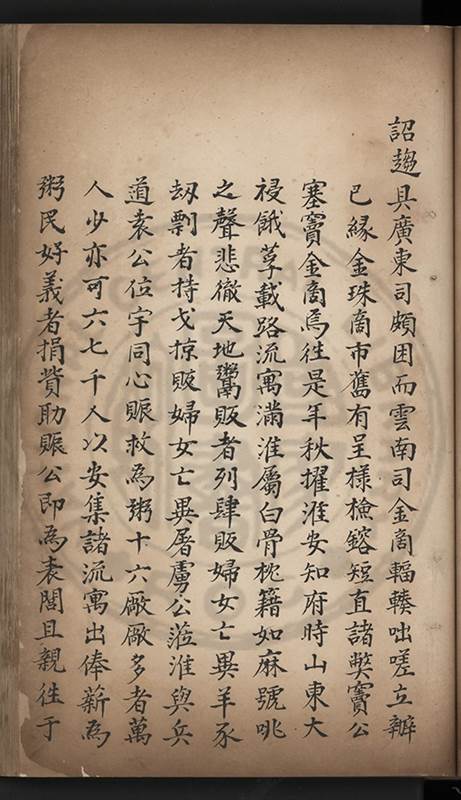 詔趨具廣東司頗困而雲南司金啇輻輳咄嗟立辦
已緣金珠啇市舊有呈樣檢鎔短直諸獘竇公
塞竇金啇焉徃是年秋擢淮安知府時山東大
祲餓莩載路流寓滿淮屬白骨枕籍如麻號咷
之聲悲徹天地鬻販者列肆販婦女亡異羊豕
刼剽者持戈掠販婦女亡異屠虜公蒞淮與兵
道袁公位宇同心賑救為粥十六廠廠多者萬
人少亦可六七千人以安集諸流寓出俸薪為
粥民好義者捐貲助賑公即為表閭且親徃于